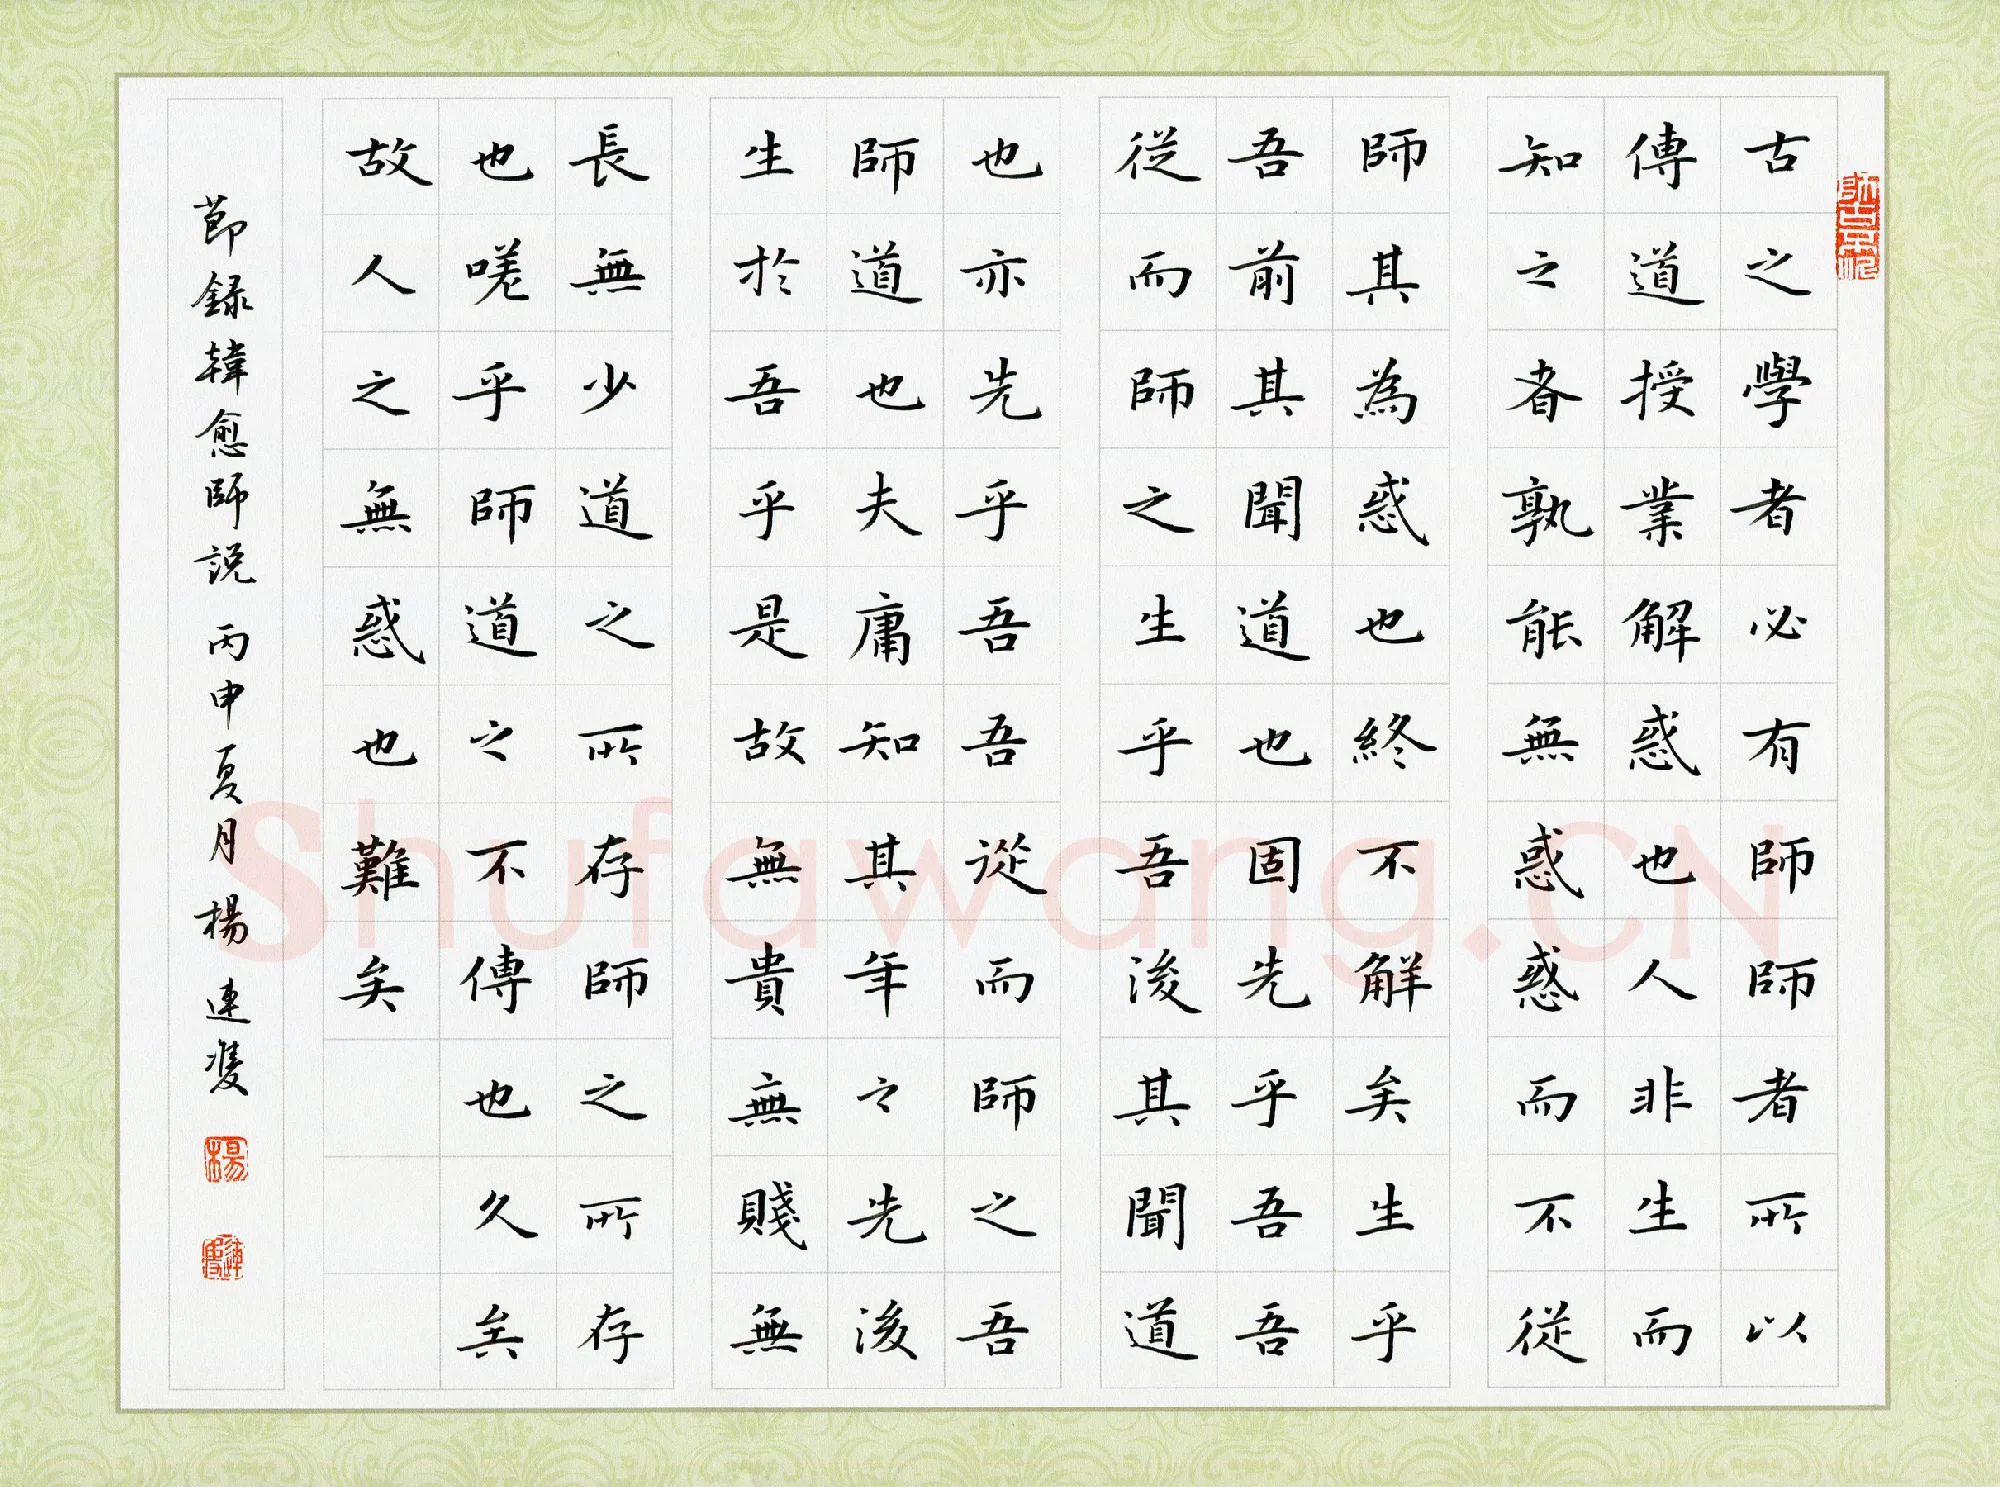 古之學者必有師師者所以
傳道授業解惑也人非生而
知之者孰能無惑惑而不從
師其為惑也終不解矣生乎
吾前其聞道也固先乎吾吾
從而師之生乎吾後其聞道
也亦先乎吾吾從而師之吾
師道也夫庸知其年之先後
生於吾乎是故無貴無賤無
長無少道之所存師之所存
也嗟乎師道之不傳也久矣
故人之無惑也難矣
節錄韓愈師說 丙申夏月楊連雙
楊
Shufawang.CN